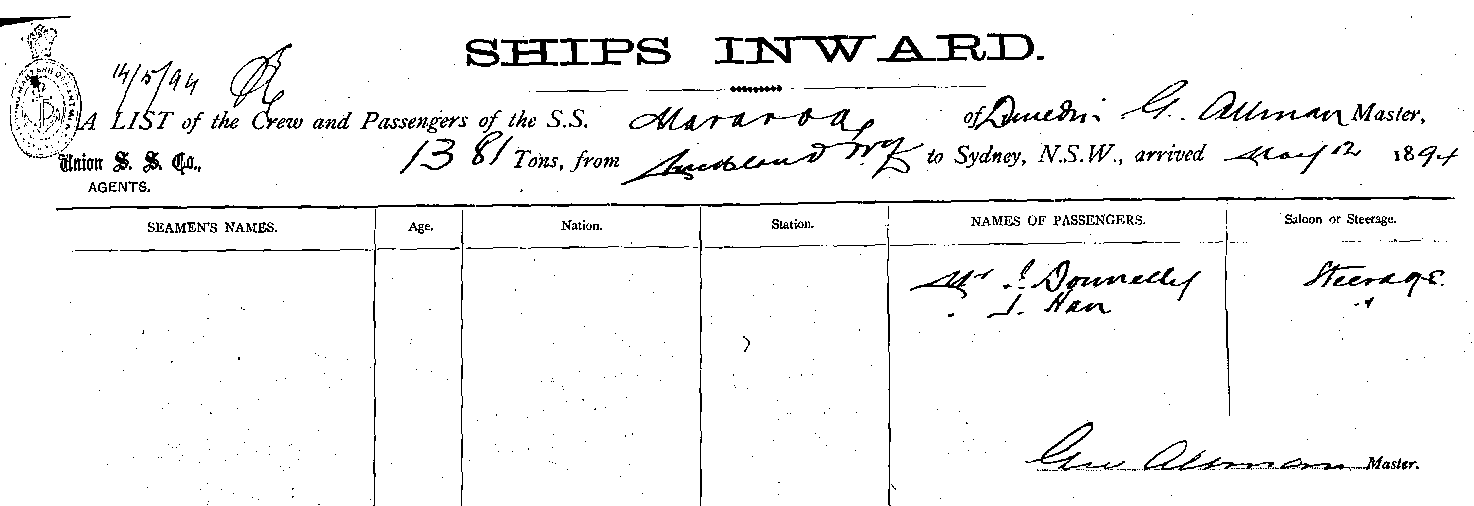 SHIPS INWARD.
14/5/94
A LIST of the Crew and Passengers of the S.S. Mararoa of Dunedin G. Allman Master,
Union S. S. Co., 1381 Tons, from Auckland to Sydney, N.S.W., arrived May 12 1894
AGENTS.
SEAMEN'S NAMES. Age. Nation. Station. NAMES OF PASSENGERS. Saloon or Steerage.
Mr J Donnelly Steerage
" J. "
Geo Allman Master.